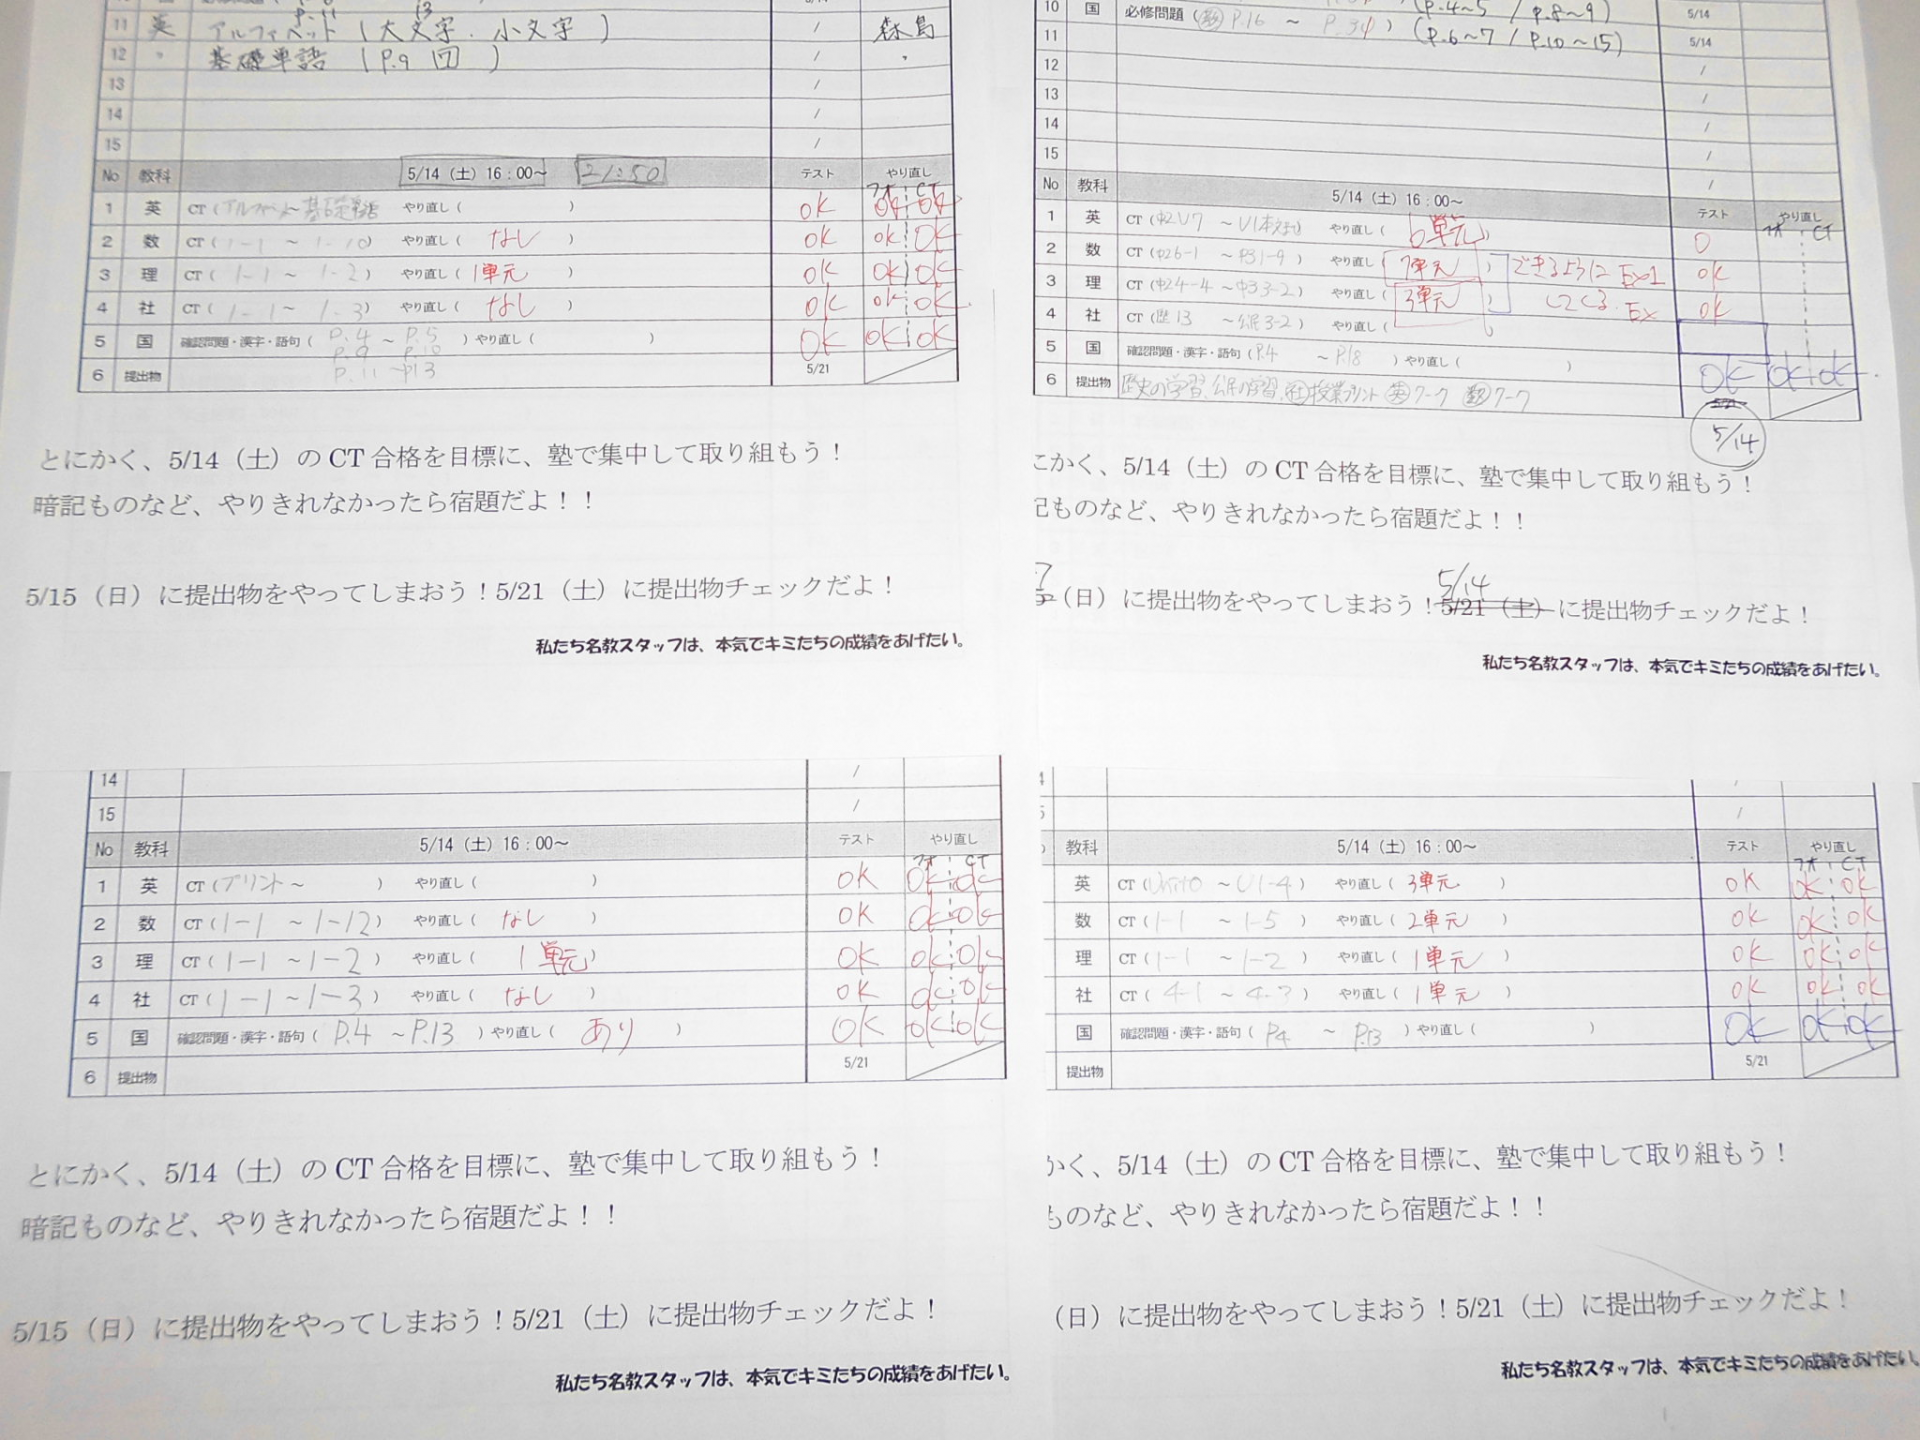 11 英 アルファベット (大文字・小文字) / 森島
12 〃 基礎単語 (P.9 回) /
13 /
14 /
15 /
No 教科 5/14（土）16：00～ 21:50 テスト やり直し
フォ CT
1 英 CT（アルファベット～基礎単語 やり直し（ ） OK OK OK
2 数 CT（1-1 ～ 1-10） やり直し（ なし ） OK OK OK
3 理 CT（1-1 ～ 1-2） やり直し（1単元 ） OK OK OK
4 社 CT（1-1 ～ 1-3） やり直し（ なし ） OK OK OK
5 国 確認問題・漢字・語句（ P.4 ～ P.5 ）やり直し（ ） OK OK OK
P.9 P.10
P.11 ～P13
6 提出物 5/21
とにかく、5/14（土）のCT合格を目標に、塾で集中して取り組もう！
暗記ものなど、やりきれなかったら宿題だよ！！
5/15（日）に提出物をやってしまおう！5/21（土）に提出物チェックだよ！
私たち名教スタッフは、本気でキミたちの成績をあげたい。
(P.4~5 / P.8~9)
10 国 必修問題（ P.16 ～ P.34 ） (P.6~7 / P.10~15) 5/14
11 5/14
12 /
13 /
14 /
15 /
/
No 教科 5/14（土）16：00～ テスト やり直し
フォ CT
1 英 CT（中2U7 ～U1本文） やり直し（ 6単元 ）
2 数 CT（中26-1 ～P31-9） やり直し（ 7単元 ） できるように Ex1 OK
3 理 CT（中24-4～中33-2） やり直し（ 3単元 ） してくる. Ex OK
4 社 CT（歴13 ～公民3-2） やり直し（
5 国 確認問題・漢字・語句（P.4 ～P.18 ）やり直し（ ） OK OK OK
6 提出物 歴史の学習、公民の学習、社授業プリント 英ワーク 数ワーク 5/21
5/14
こかく、5/14（土）のCT合格を目標に、塾で集中して取り組もう！
記ものなど、やりきれなかったら宿題だよ！！
5/14
（日）に提出物をやってしまおう！5/21（土）に提出物チェックだよ！
私たち名教スタッフは、本気でキミたちの成績をあげたい。
14 /
15 /
No 教科 5/14（土）16：00～ テスト やり直し
フォ CT
1 英 CT（プリント～ ） やり直し（ ） OK OK OK
2 数 CT（1-1 ～1-12） やり直し（ なし ） OK OK OK
3 理 CT（1-1 ～1-2 ） やり直し（ 1単元） OK OK OK
4 社 CT（1-1 ～1-3 ） やり直し（ なし ） OK OK OK
5 国 確認問題・漢字・語句（ P.4 ～P.13 ）やり直し（ あり ） OK OK OK
6 提出物 5/21
とにかく、5/14（土）のCT合格を目標に、塾で集中して取り組もう！
暗記ものなど、やりきれなかったら宿題だよ！！
5/15（日）に提出物をやってしまおう！5/21（土）に提出物チェックだよ！
私たち名教スタッフは、本気でキミたちの成績をあげたい。
/
/
教科 5/14（土）16：00～ テスト やり直し
フォ CT
英 CT（Unit0 ～U1-4） やり直し（ 3単元 ） OK OK OK
数 CT（1-1 ～ 1-5 ） やり直し（ 2単元 ） OK OK OK
理 CT（1-1 ～ 1-2 ） やり直し（ 1単元 ） OK OK OK
社 CT（ 4-1 ～ 4-3 ） やり直し（ 1単元 ） OK OK OK
国 確認問題・漢字・語句（ P4 ～ P.13 ）やり直し（ ） OK OK OK
提出物 5/21
かく、5/14（土）のCT合格を目標に、塾で集中して取り組もう！
ものなど、やりきれなかったら宿題だよ！！
（日）に提出物をやってしまおう！5/21（土）に提出物チェックだよ！
私たち名教スタッフは、本気でキミたちの成績をあげたい。